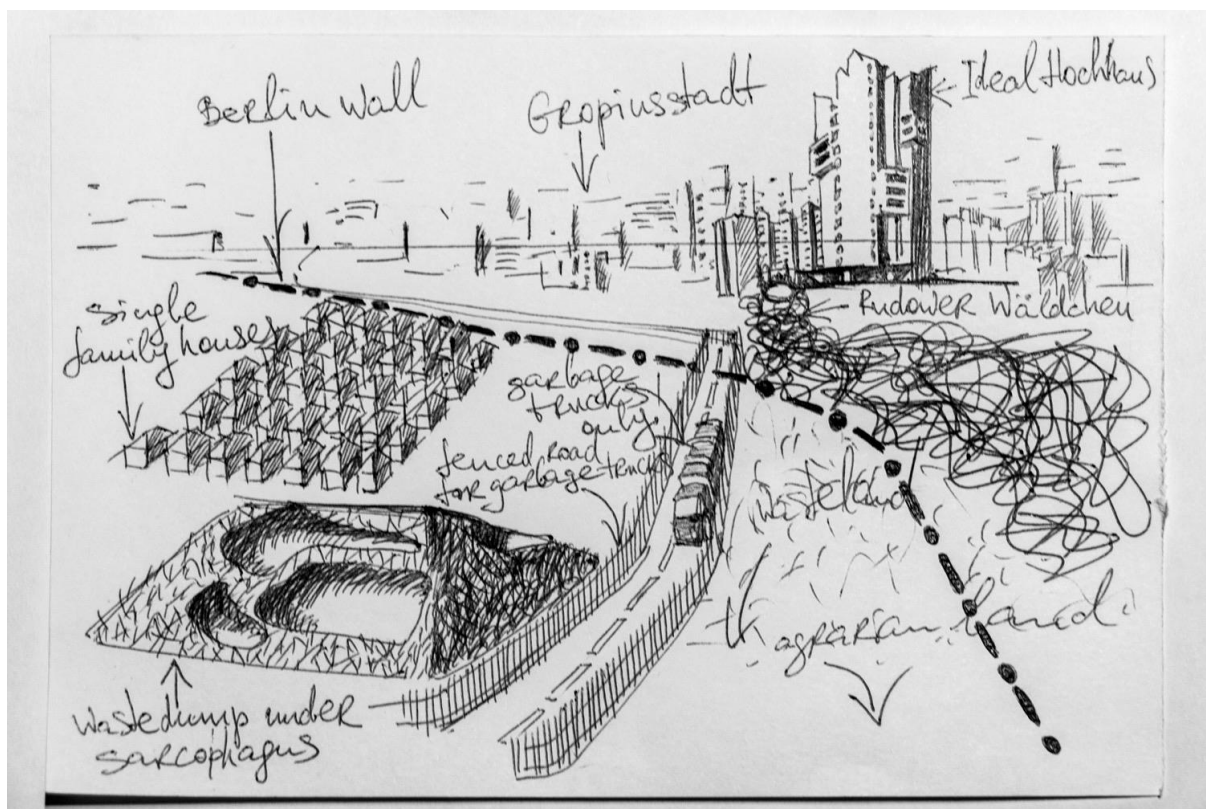 Berlin Wall
Gropiusstadt
Ideal Hochhaus
Rudower Wäldchen
single
family houses
garbage
trucks
only
fenced road
for garbage-trucks
wasteland
agrarian land
Wastedump under
sarcophagus